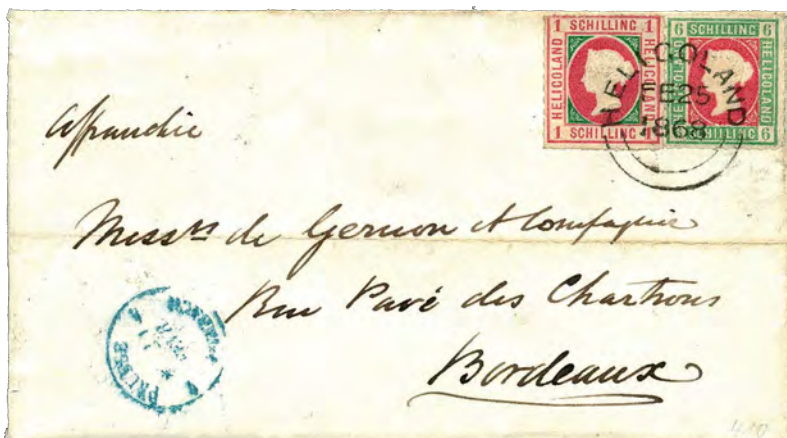 1 SCHILLING 1
HELIGOLAND
HELIGOLAND
1 SCHILLING 1
6 SCHILLING 6
HELIGOLAND
HELIGOLAND
6 SCHILLING 6
HELIGOLAND
FE 25
1868
Affranchie
Messrs de Gernon et Compagnie
Rue Pavé des Chartrons
Bordeaux
PRUSSE